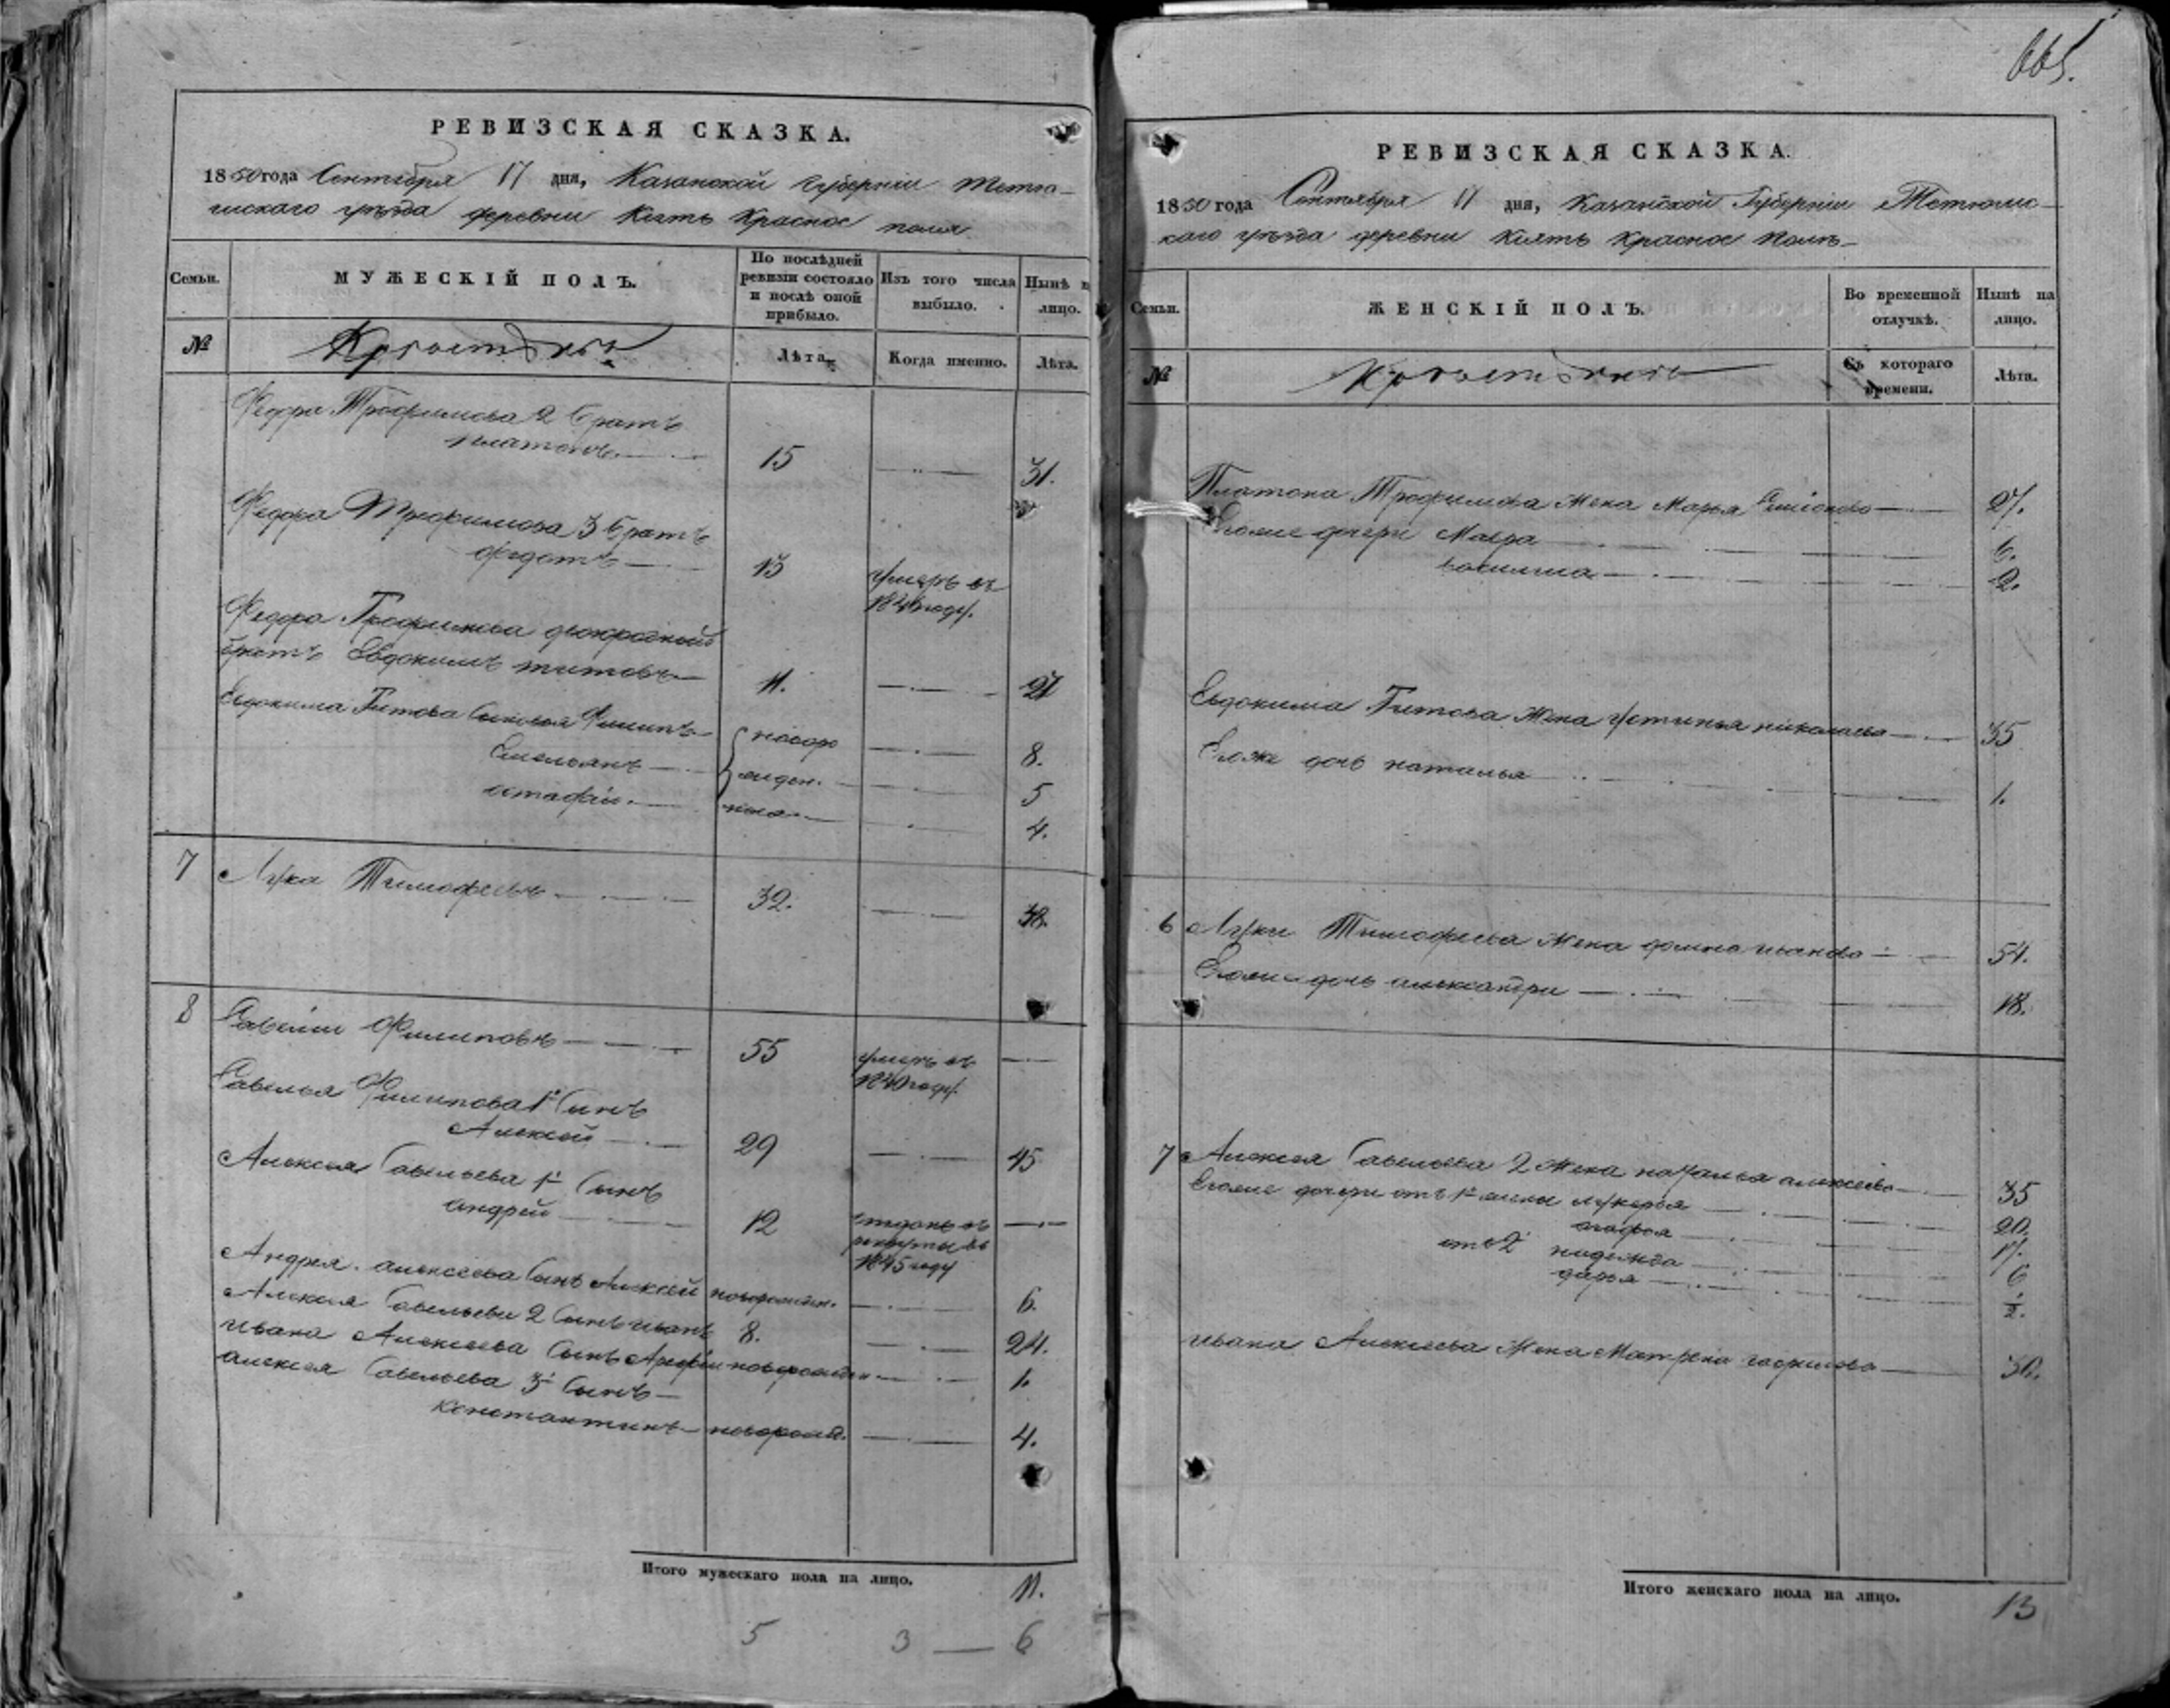 665.
РЕВИЗСКАЯ СКАЗКА.
1850 года Сентября 17 дня, Казанской Губернии Тетю-
шскаго уѣзда деревни Кіять Красное поля
Семьи.
МУЖЕСКІЙ ПОЛЪ.
По послѣдней ревизіи состояло и послѣ оной прибыло.
Изъ того числа выбыло.
Нынѣ на лицо.
№
Крестьяне
Лѣта.
Когда именно.
Лѣта.
Федора Трофимова 2 братъ
Платонъ 15 31.
Федора Трофимова 3 братъ
Федотъ 13 умеръ въ
184 году.
Федора Трофимова двоюродный
братъ Евдокимъ Титовъ 11. 27
Евдокима Титова Сыновья Филипъ новоро 8.
Емельянъ жден. 5
остафiй ные 4.
7 Лука Тимофеевъ 32. 48.
8 Савелiй Филиповъ 55 умеръ въ
1840 году.
Савелья Филипова 1й Сынъ
Алексей 29 45
Алексея Савельева 1й Сынъ
андрей 12 отданъ въ
рекруты въ
1845 году
Андрея алексеева Сынъ Алексей новорожден. 6.
Алексея Савельева 2 Сынъ иванъ 8. 24.
ивана Алексеева Сынъ новорожден 1.
алексея Савельева 3й Сынъ
Константинъ новорожд. 4.
Итого мужескаго пола на лицо. 11.
5 3 — 6
РЕВИЗСКАЯ СКАЗКА.
1850 года Сентября 17 дня, Казанской Губернии Тетюшс-
каго уѣзда деревни Кіять Красное Поля
Семьи.
ЖЕНСКІЙ ПОЛЪ.
Во временной отлучкѣ.
Нынѣ на лицо.
№
Крестьяне
Съ котораго времени.
Лѣта.
Платона Трофимова Жена Марья 27.
Егоже дочери 6.
василиса 2.
Евдокима Титова Жена устинья николаева 35
Егоже дочь наталья 1.
6 Луки Тимофеева Жена домна иванова 54.
Егоже дочь александра 18.
7 Алексея Савельева 2 Жена наталья алексеева 35
Егоже дочери отъ 1й жены лукерья 20.
агафья 17.
отъ 2й надежда 6
дарья ½.
ивана Алексеева Жена Матрена гаврилова 30.
Итого женскаго пола на лицо. 13